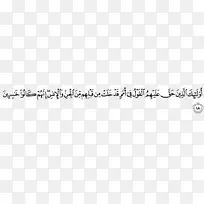 أُو۟لَٰٓئِكَ ٱلَّذِينَ حَقَّ عَلَيْهِمُ ٱلْقَوْلُ فِىٓ أُمَمٍ قَدْ خَلَتْ مِن قَبْلِهِم مِّنَ ٱلْجِنِّ وَٱلْإِنسِ ۖ إِنَّهُمْ كَانُوا۟ خَٰسِرِينَ
١٨